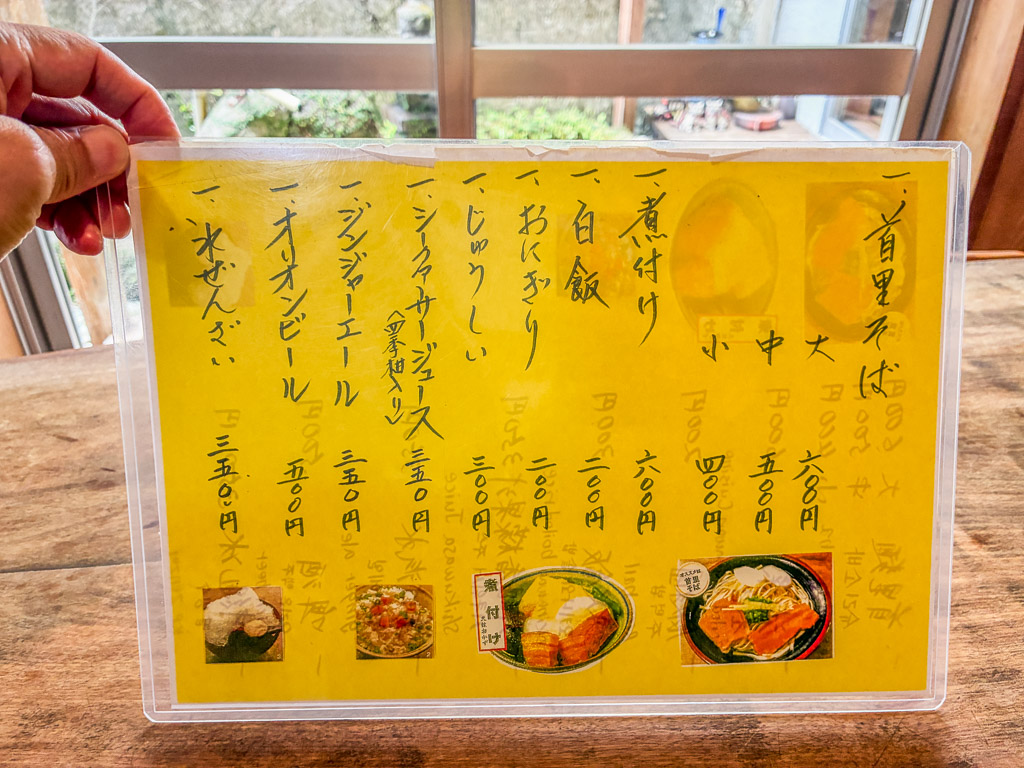 一、首里そば
大 六〇〇円
中 五〇〇円
小 四〇〇円
一、煮付け 六〇〇円
一、白飯 二〇〇円
一、おにぎり 二〇〇円
一、じゅうしい 三〇〇円
一、シークァーサージュース 三五〇円
（四季柑入り）
一、ジンジャーエール 三五〇円
一、オリオンビール 五〇〇円
一、氷ぜんざい 三五〇円
首里そば
煮付け